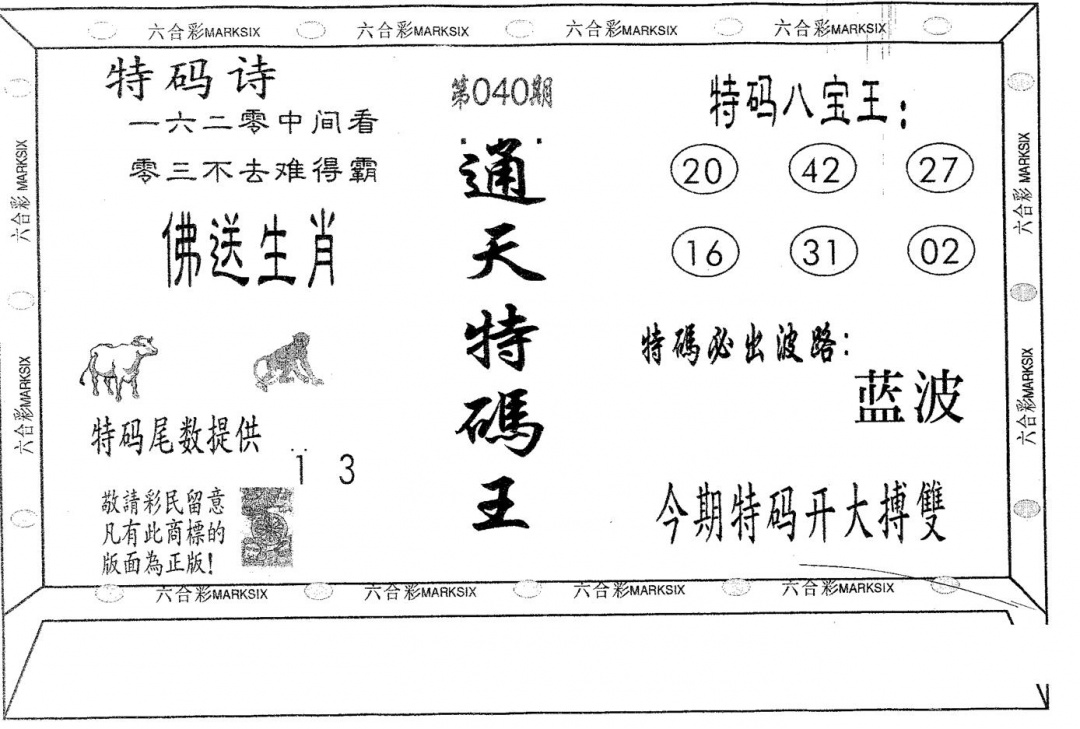 六合彩MARKSIX 六合彩MARKSIX 六合彩MARKSIX 六合彩MARKSIX
六合彩 MARKSIX
六合彩MARKSIX
特码诗
一六二零中间看
零三不去难得霸
佛送生肖
特码尾数提供
1 3
敬請彩民留意
凡有此商標的
版面為正版!
第040期
通天特碼王
特码八宝王:
20 42 27
16 31 02
特碼必出波路:
蓝波
今期特码开大搏雙
六合彩 MARKSIX
六合彩MARKSIX
六合彩MARKSIX 六合彩MARKSIX 六合彩MARKSIX 六合彩MARKSIX